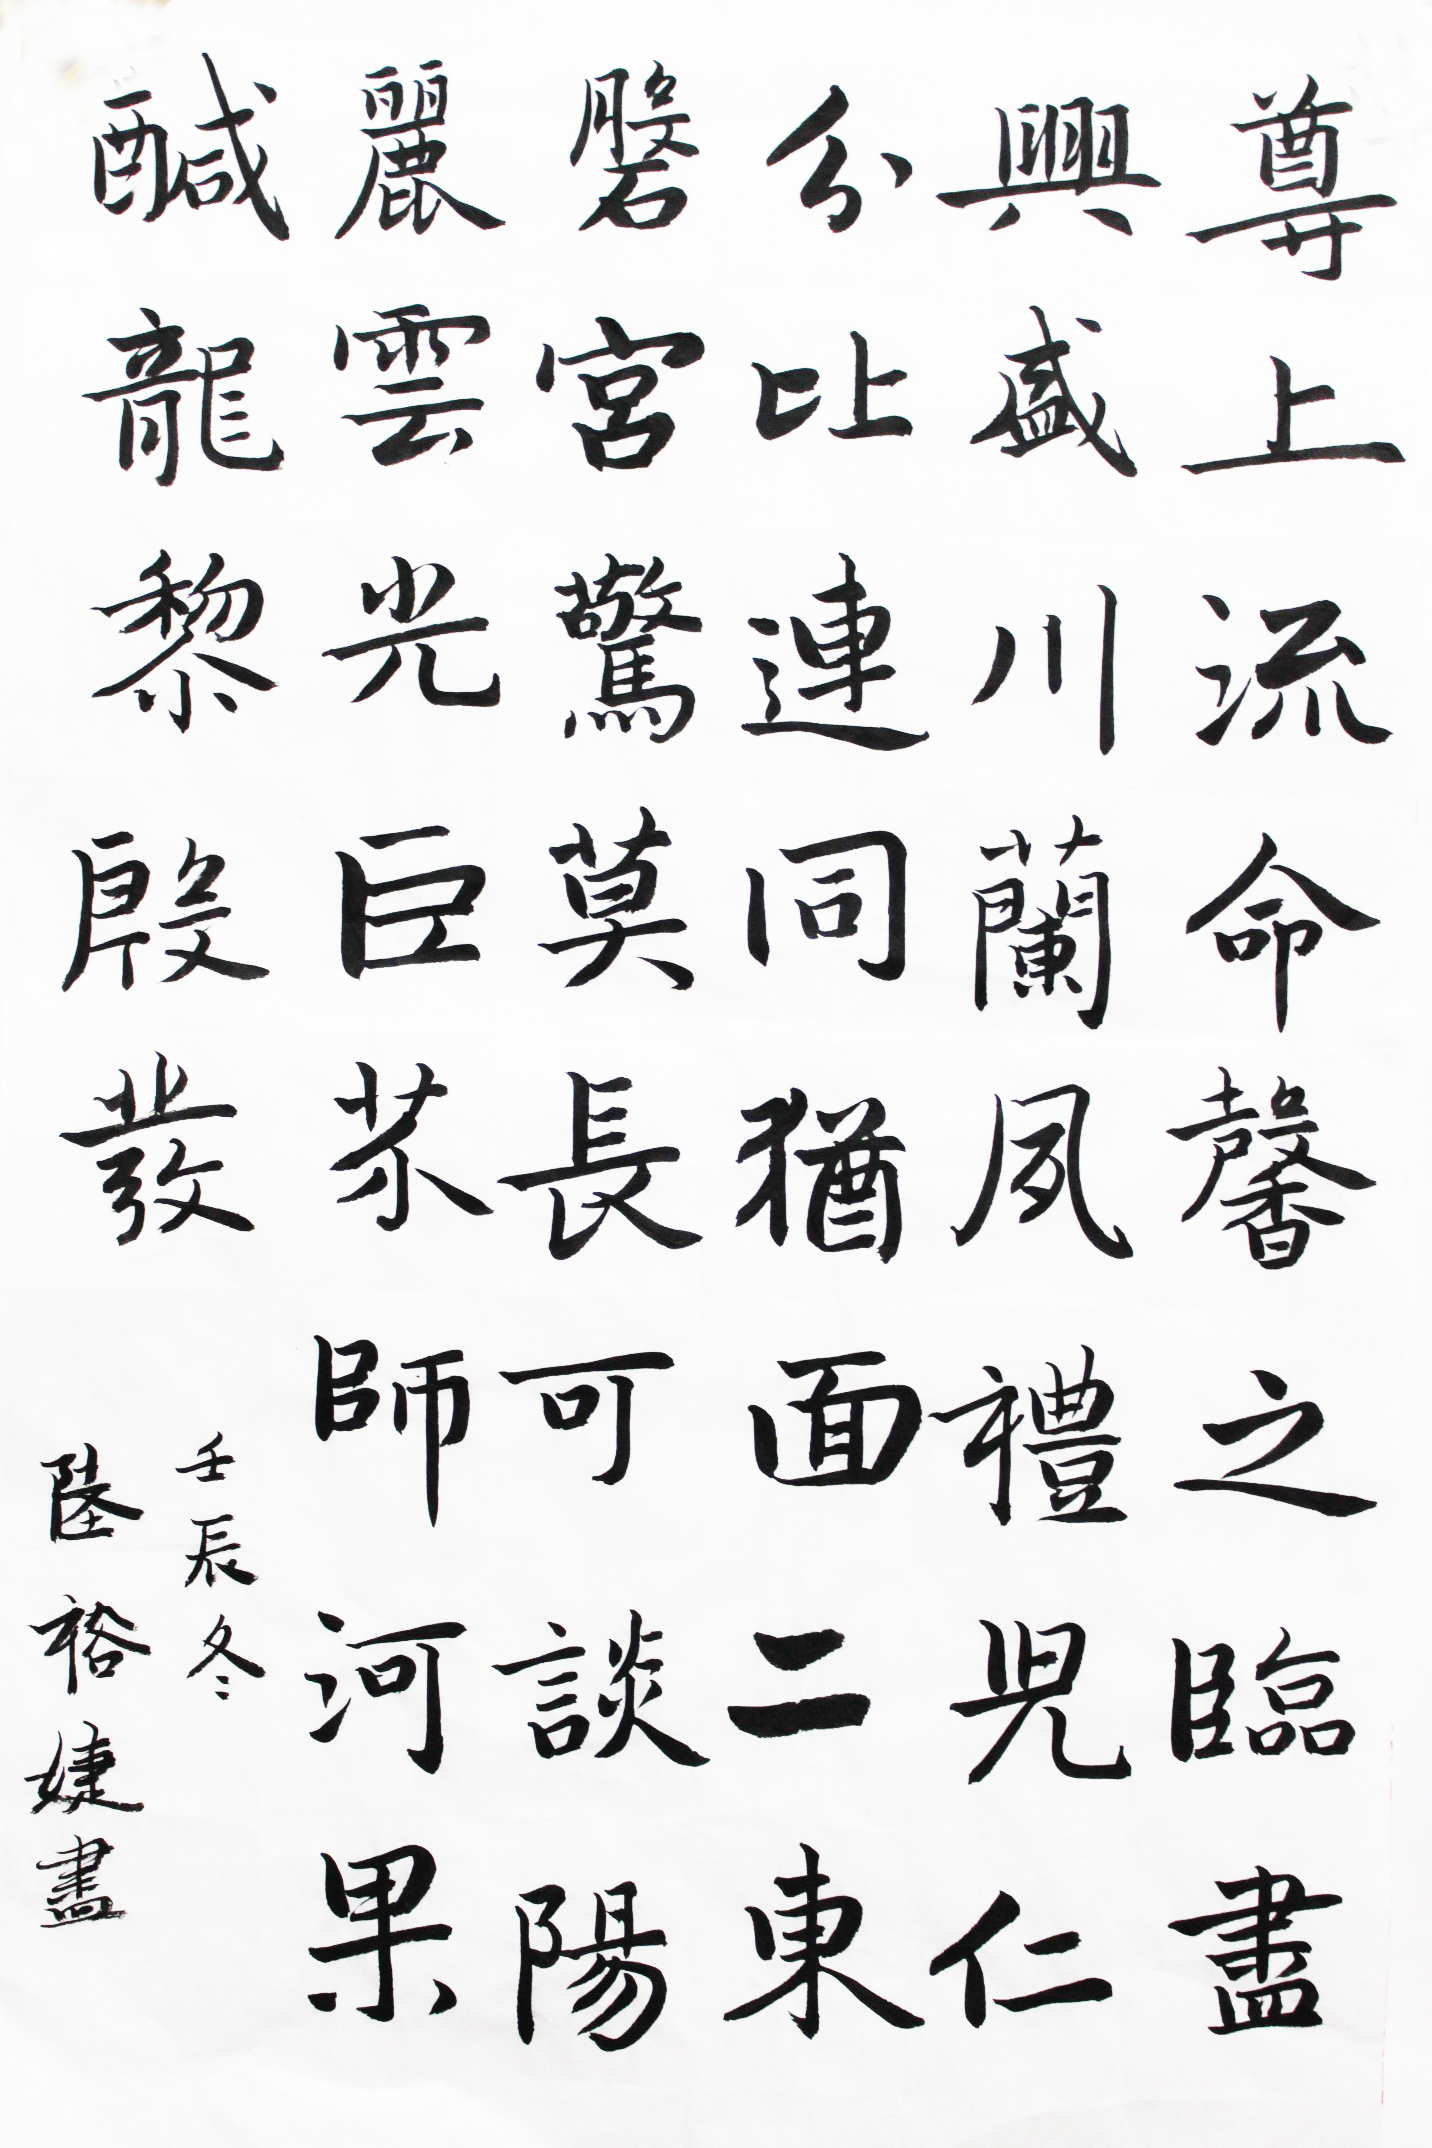 尊上流命馨之臨盡
興盛川蘭夙禮兒仁
分比連同猶面二東
磐宮驚莫長可談陽
麗雲光巨芥師河果
醎龍黎殷發
壬辰冬
陸裕婕盡